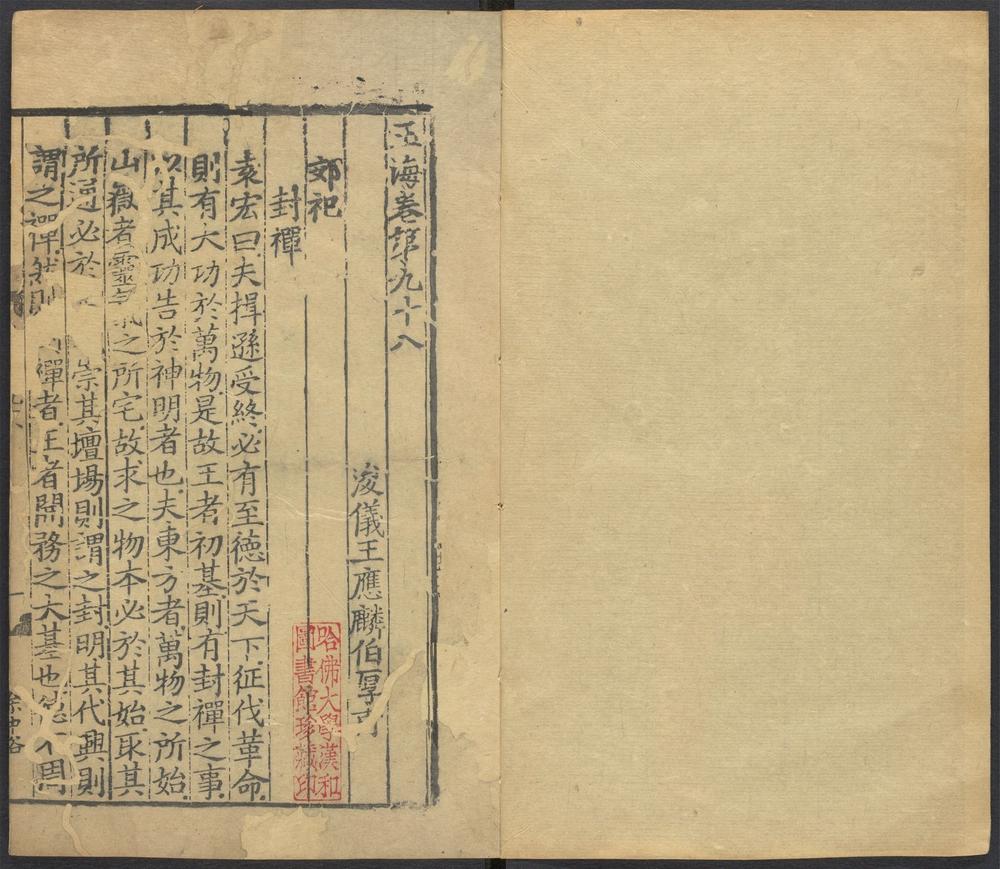 玉海卷第九十八
浚儀王應麟伯厚
郊祀
封禪
袁宏曰夫揖遜受終必有至德於天下征伐革命
則有大功於萬物是故王者初基則有封禪之事
以其成功告於神明者也夫東方者萬物之所始
山嶽者靈之所宅故求之物本必於其始取其
所通必於崇其壇場則謂之封明其代興則
謂之禪然則禪者王者開務之大基也不周
哈佛大學漢和
圖書館珍藏印